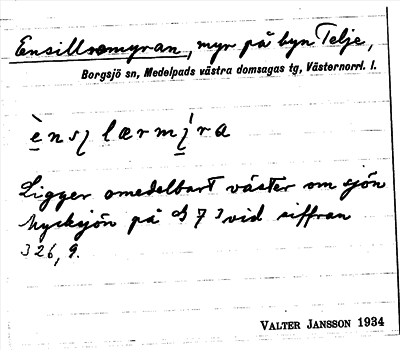 Ensillremyran, myr på byn Telje,
Borgsjö sn, Medelpads västra domsagas tg, Västernorrl. l.
Ligger omedelbart väster om sjön
Mycksjön på J 7 3 vid siffran
326,9.
VALTER JANSSON 1934